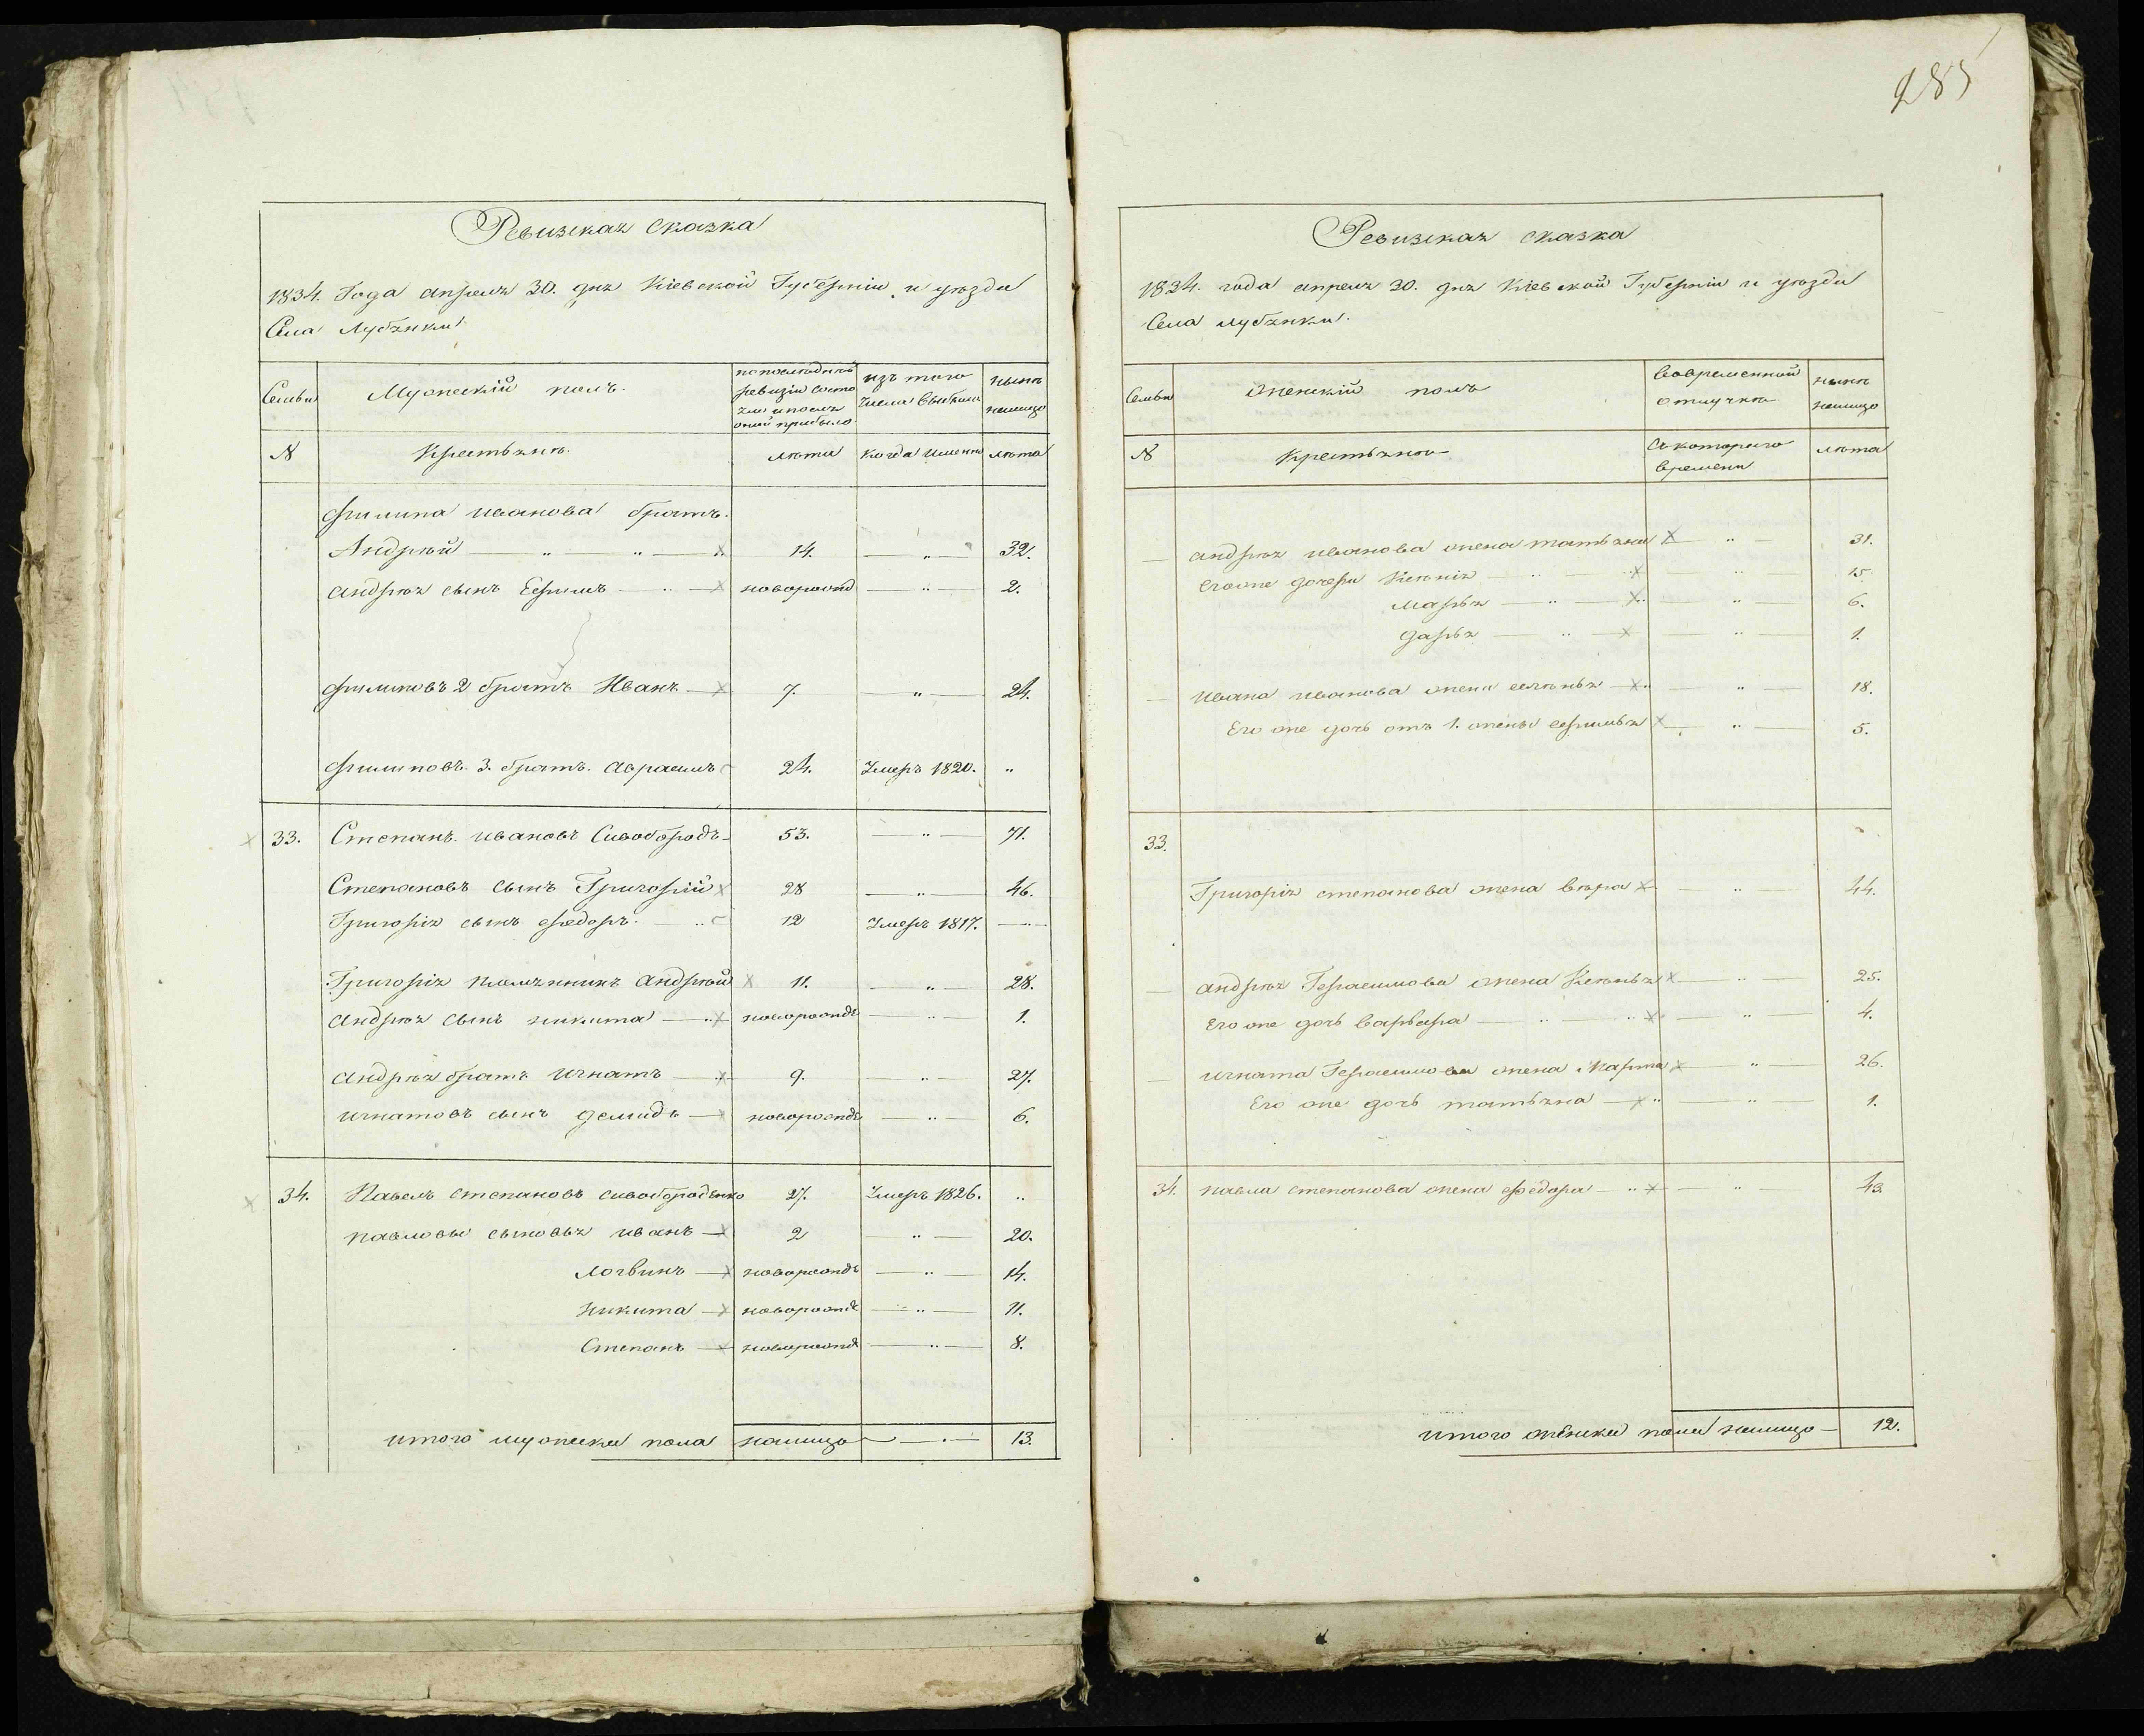 285
Ревизская сказка
1834. Года апреля 30. дня Кіевской Губерніи и уезда
Села Лубянки.
Семьи
Мужескій полъ.
по последней
ревизіи состо
яло и после
оной прибыло
изъ того
числа выбыло
ныне
налицо
№
Крестьяне.
лета
когда именно
лета
Филипа Иванова братъ.
Андрей — „ — „ — 14. — „ — 32.
Андрея сынъ Ефимъ — „ — новорожд — „ — 2.
Филиповъ 2 братъ Иванъ — 7. — „ — 24.
Филиповъ 3. братъ. Авраамъ 24. Умеръ 1820. „
33. Степанъ Ивановъ Сивобородъ 53. — „ — 71.
Степановъ сынъ Григорій 28 — „ — 46.
Григорія сынъ Федоръ. — „ 12 Умеръ 1817. — „ —
Григорія племянникъ Андрей 11. — „ — 28.
Андрея сынъ Никита — „ новорожд — „ — 1.
Андрея братъ Игнатъ — 9. — „ — 27.
Игнатовъ сынъ Демидъ — новорожд — „ — 6.
34. Павелъ Степановъ Сивобороденко 27. Умеръ 1826. „
Павловы сыновья Иванъ — 2 — „ — 20.
Логвинъ — новорожд — „ — 14.
Никита — новорожд — „ — 11.
Степанъ — новорожд — „ — 8.
итого мужеска пола налицо — „ — 13.
Ревизская сказка
1834. года апреля 30. дня Кіевской Губерніи и уезда
Села Лубянки.
Семьи
Женскій полъ
Во временной
отлучке
ныне
налицо
№
Крестьяне
Съ котораго
времени
лета
— Андрея Иванова жена Татьяна — „ — 31.
Его же дочери Ксенія — „ — „ — 15.
Марья — „ — „ — 6.
Дарья — „ — „ — 1.
— Ивана Иванова жена — „ — 18.
Его же дочь отъ 1. жены Ефимья — „ — 5.
33.
Григорія Степанова жена Вера — „ — 44.
— Андрея Герасимова жена Ксенья — „ — 25.
Его же дочь Варвара — „ — „ — 4.
— Игната Герасимова жена Марта — „ — 26.
Его же дочь Татьяна — „ — „ — 1.
34. Павла Степанова жена Федора — „ — „ — 43
итого женска пола налицо — 12.